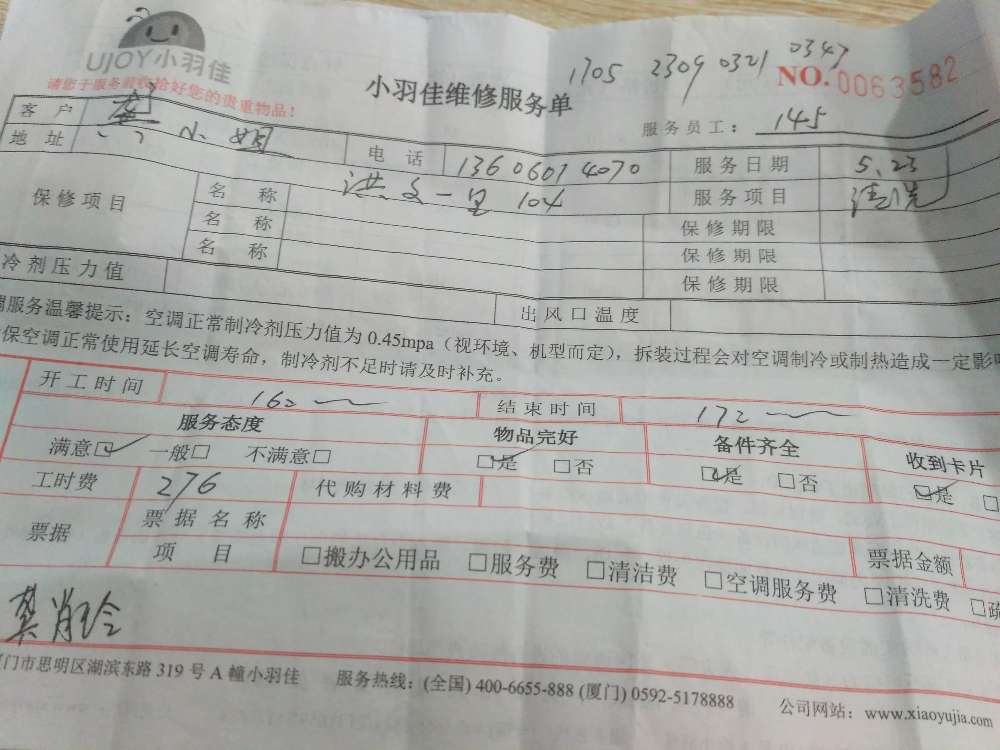 UJOY小羽佳
请您于服务前收拾好您的贵重物品!
1705 2309 0321 0347
小羽佳维修服务单
NO.0063582
服务员工: 145
客户 龚小姐 电话 13606074070 服务日期 5.23
地址 洪文一里 104 服务项目 清洗
保修项目 名称 保修期限
名称 保修期限
名称 保修期限
冷剂压力值 出风口温度
调服务温馨提示: 空调正常制冷剂压力值为 0.45mpa (视环境、机型而定), 拆装过程会对空调制冷或制热造成一定影响
保空调正常使用延长空调寿命, 制冷剂不足时请及时补充。
开工时间 结束时间
服务态度 物品完好 备件齐全 收到卡片
满意☑ 一般□ 不满意□ ☑是 □否 ☑是 □否 ☑是 □
工时费 276 代购材料费
票据 票据名称 票据金额
项目 □搬办公用品 □服务费 □清洁费 □空调服务费 □清洗费 □疏
厦门市思明区湖滨东路 319 号 A 幢小羽佳 服务热线: (全国) 400-6655-888 (厦门) 0592-5178888 公司网站: www.xiaoyujia.com